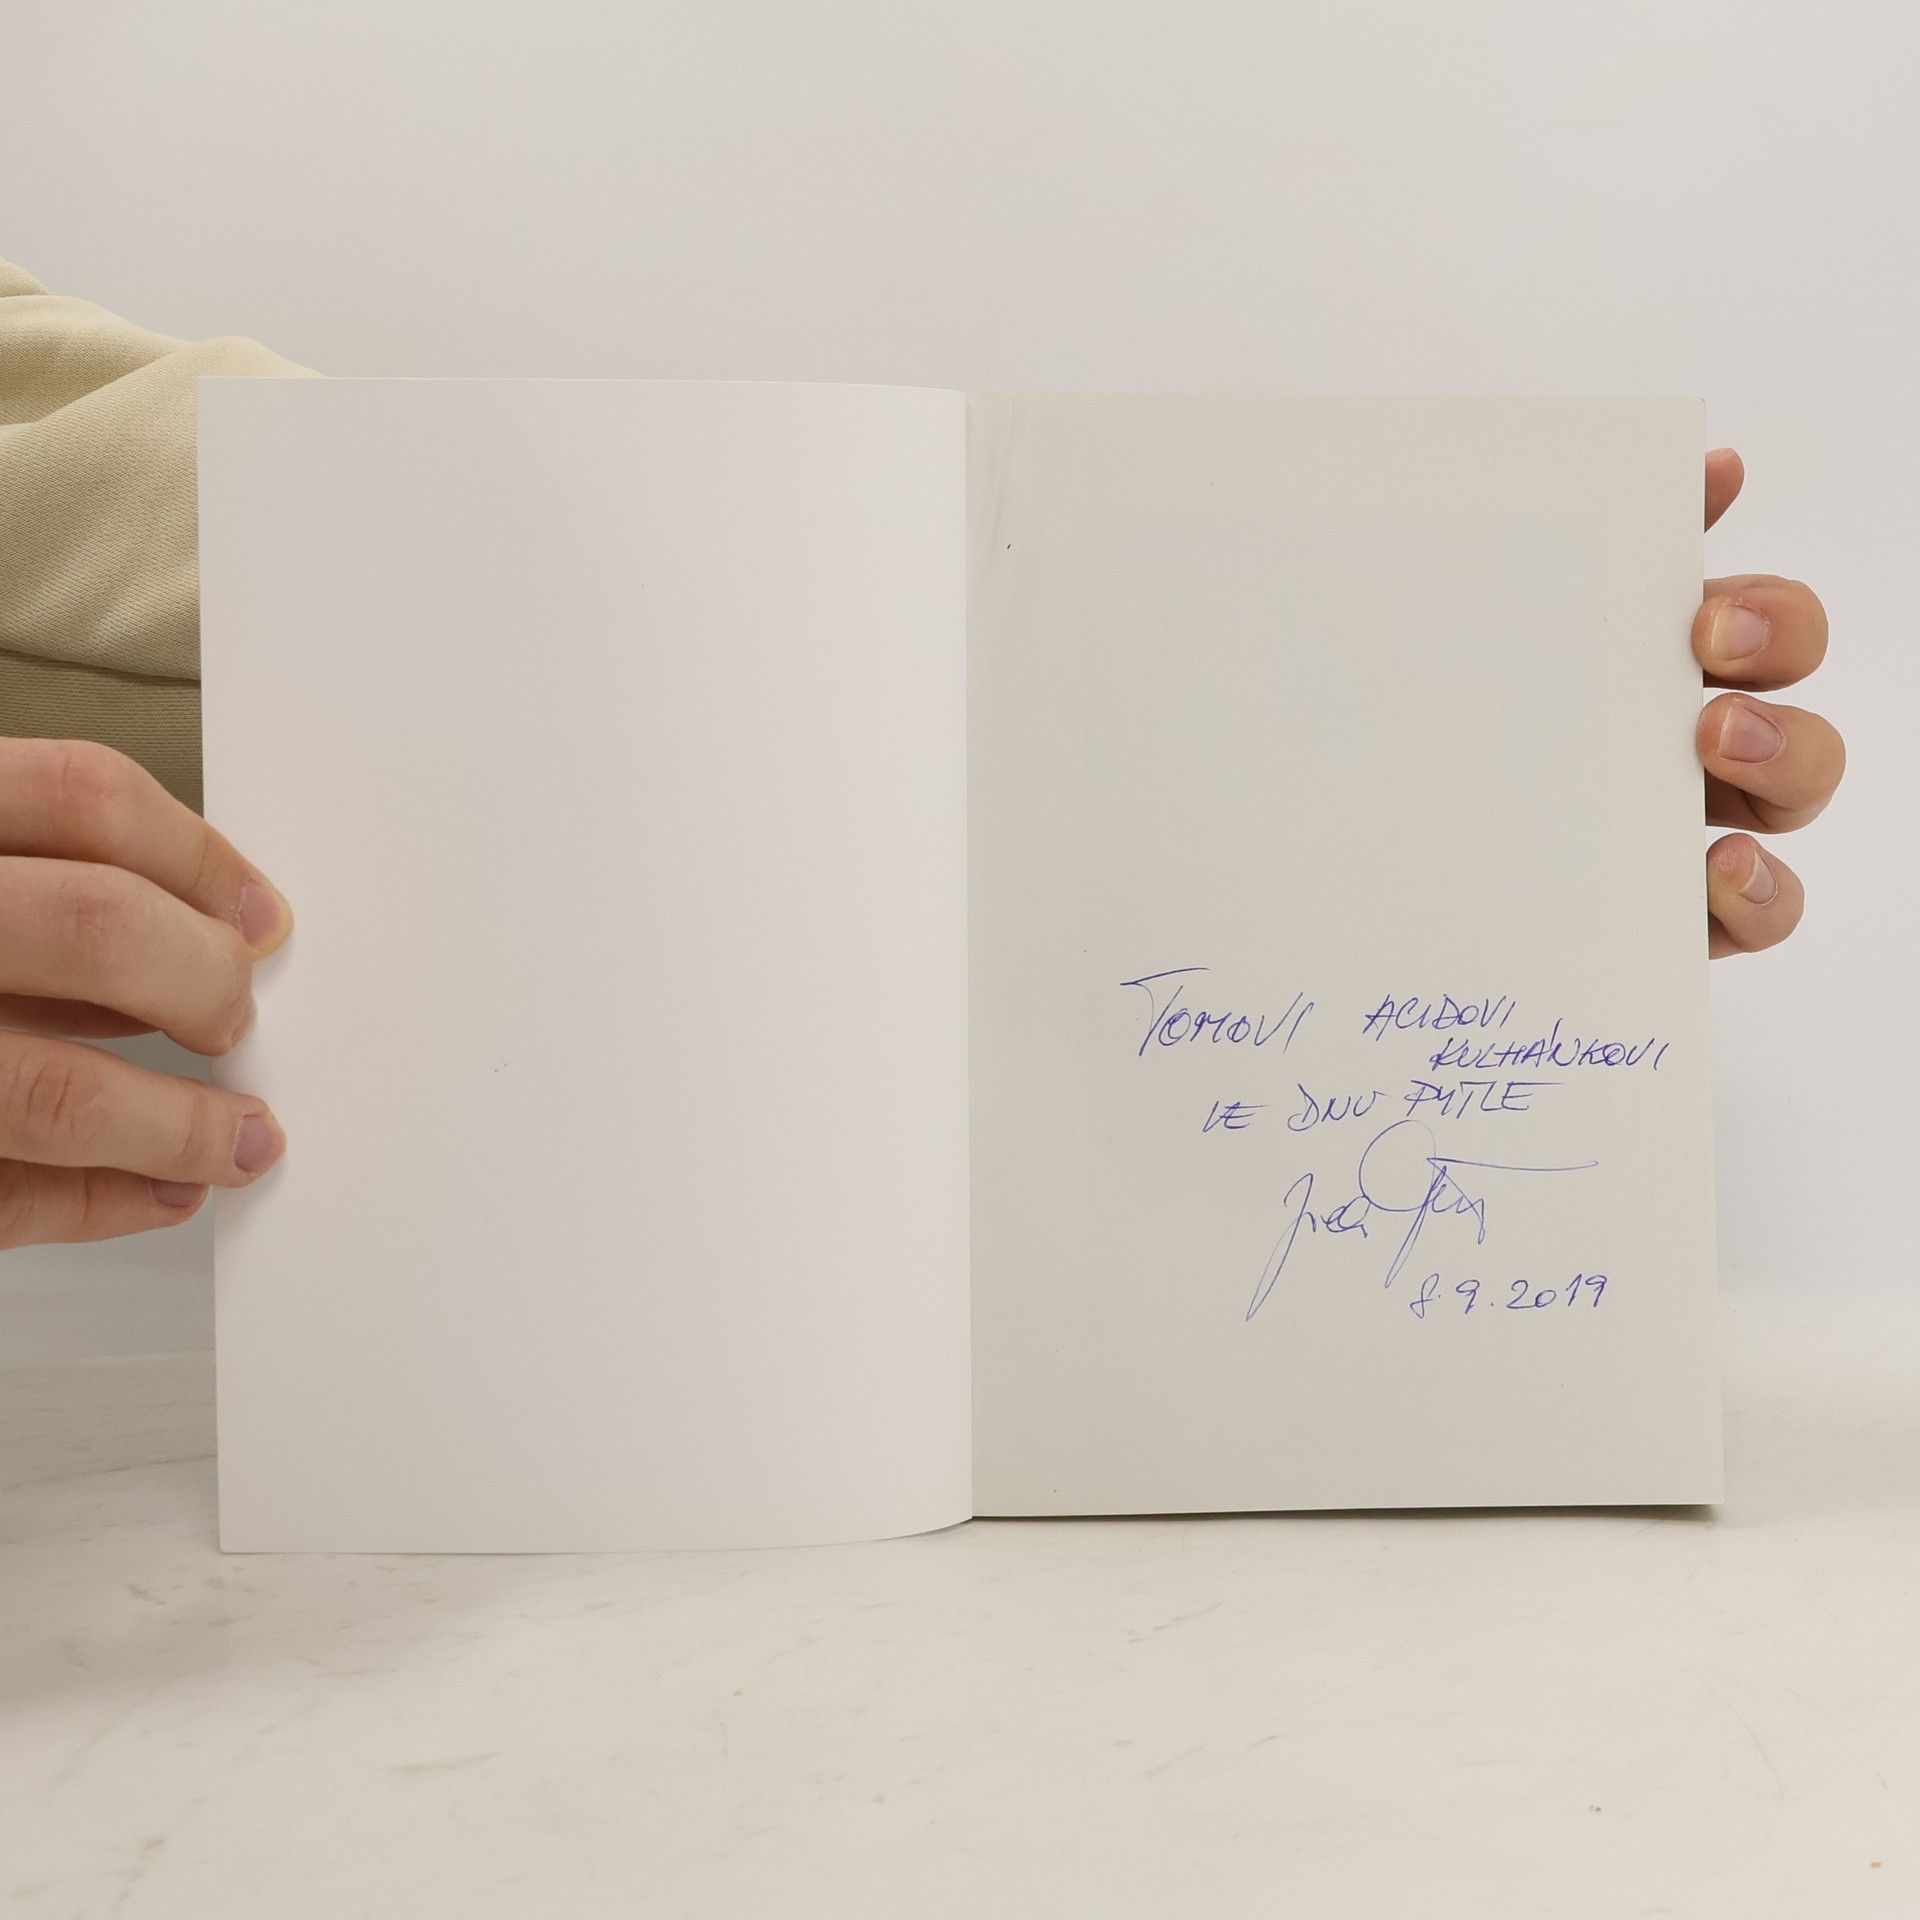 TOMOVI ACIDOVI
KULHÁNKOVI
VE DNU PYTLE
8.9.2019